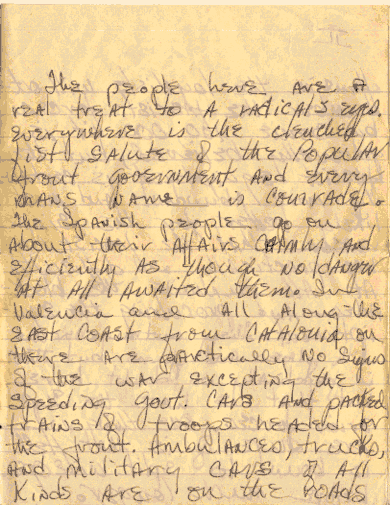 The people here are a
real treat to a radical's eyes.
Everywhere is the clenched
fist salute of the Popular
Front government and every
mans name is Comrade.
The Spanish people go on
about their affairs calmly and
efficiently as though no danger
at all awaited them. In
Valencia and all along the
east coast from Catalonia on
there are practically no signs
of the war excepting the
speeding govt. cars and packed
trains of troops headed for
the front. Ambulances, trucks,
and military cars of all
kinds are on the roads